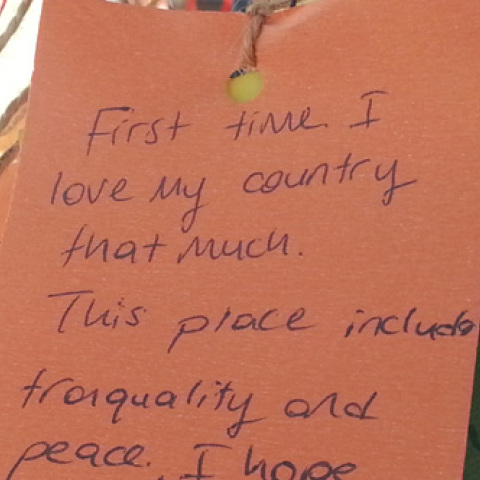 First time I
love my country
that much.
This place include
tranquality and
peace. I hope